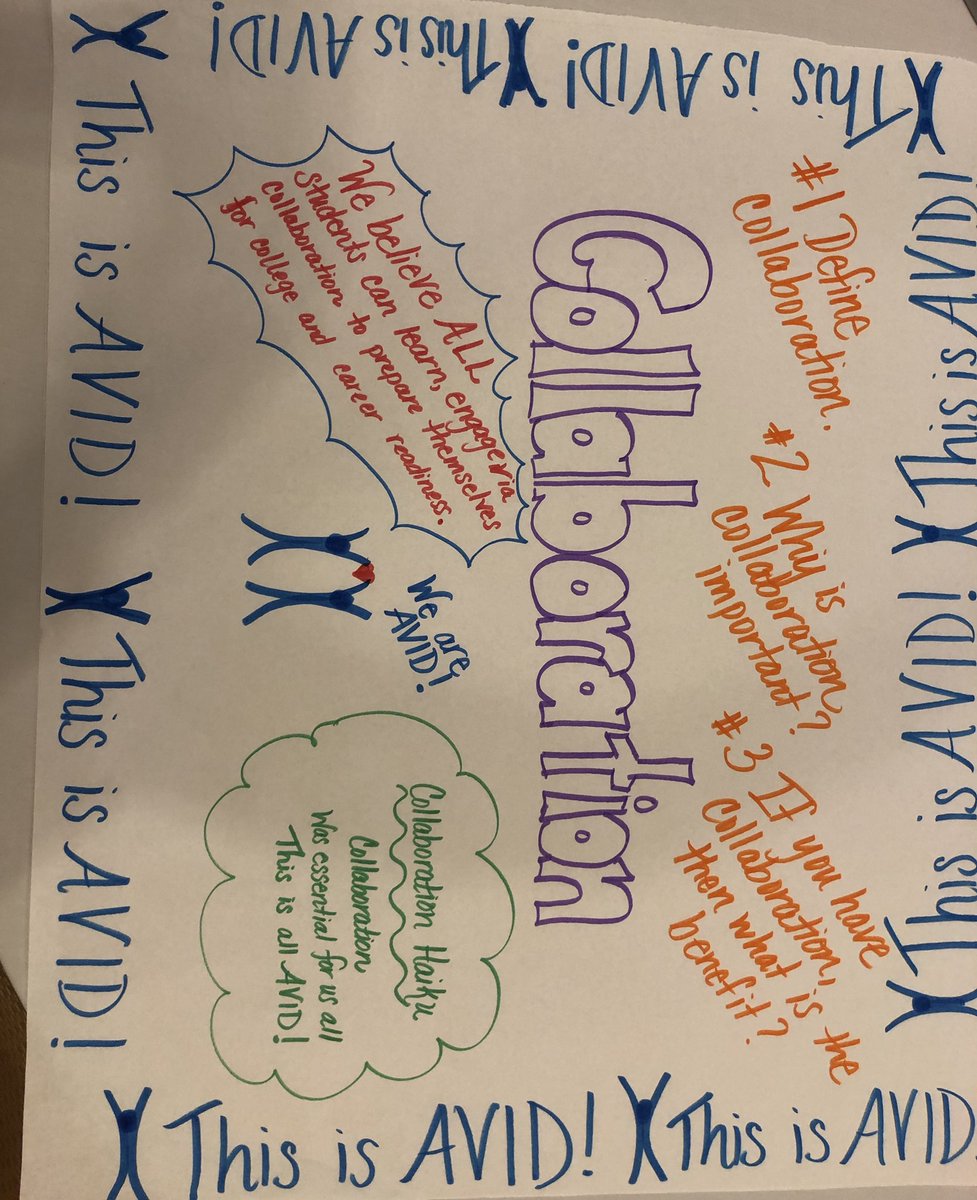 This is AVID!
This is AVID!
#1 Define
collaboration.
#2 Why is
collaboration
important?
#3 If you have
collaboration,
then what is the
benefit?
Collaboration
We believe ALL
students can learn, engage via
collaboration to prepare themselves
for college and career readiness.
We are
AVID!
Collaboration Haiku
Collaboration
Was essential for us all
This is all AVID!
This is AVID!
This is AVID!
This is AVID!
This is AVID!
This is AVID!
This is AVID!